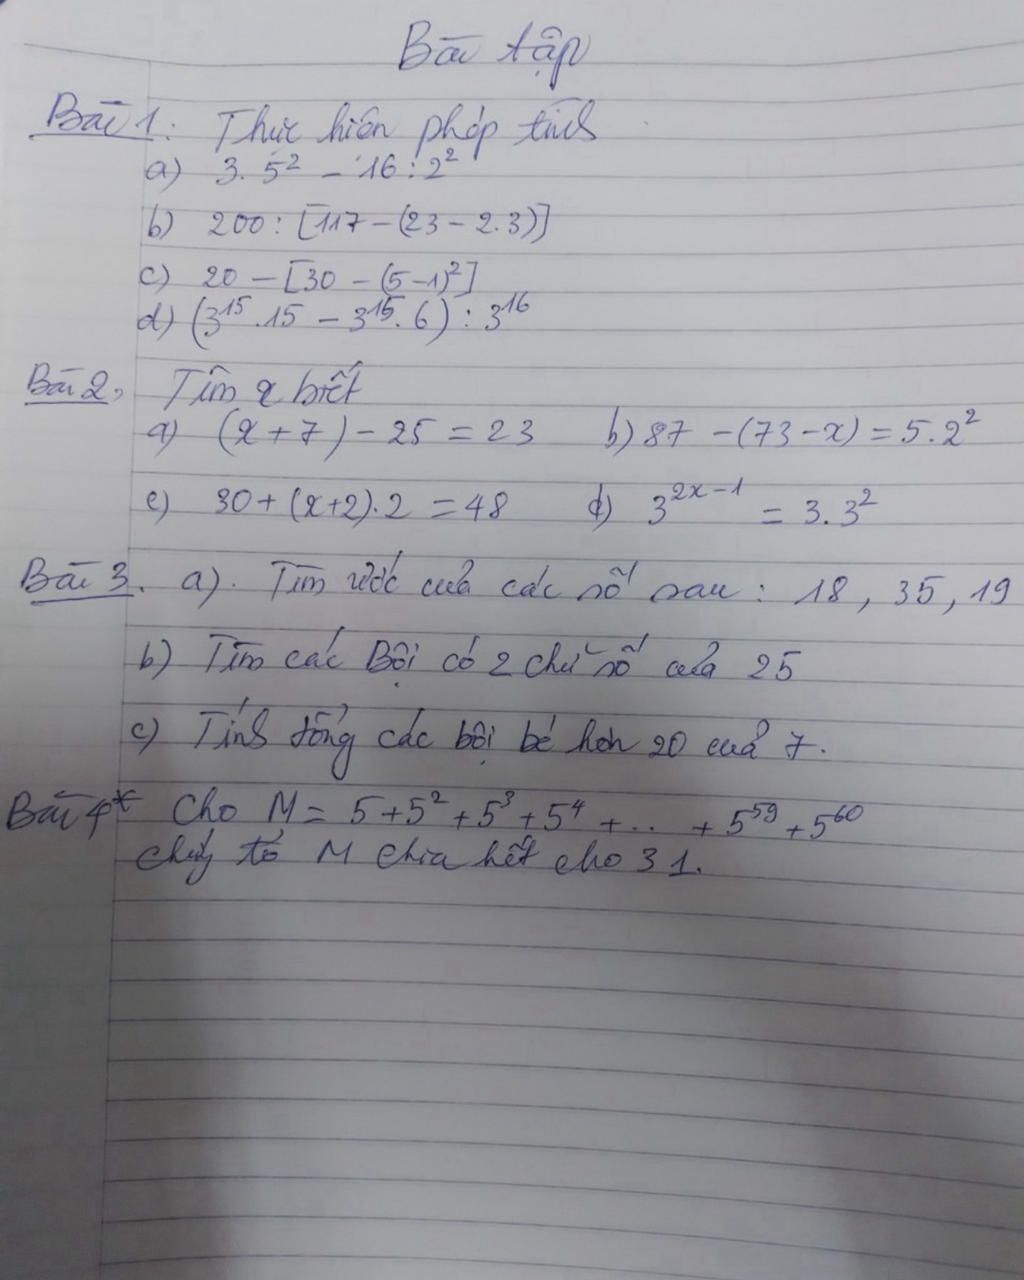 Bài tập
Bài 1: Thực hiện phép tính
a) 3. 5² - 16 : 2²
b) 200 : [117 - (23 - 2.3)]
c) 20 - [30 - (5-1)²]
d) (3¹⁵ .15 - 3¹⁵. 6) : 3¹⁶
Bài 2, Tìm x biết
a) (x + 7) - 25 = 23 b) 87 - (73 - x) = 5. 2²
c) 30 + (x+2). 2 = 48 d) 3²ˣ⁻¹ = 3. 3²
Bài 3. a). Tìm ước của các số sau : 18, 35, 19
b) Tìm các Bội có 2 chữ số của 25
c) Tính tổng các bội bé hơn 20 của 7.
Bài 4* Cho M = 5 + 5² + 5³ + 5⁴ + .. + 5⁵⁹ + 5⁶⁰
chứng tỏ M chia hết cho 31.